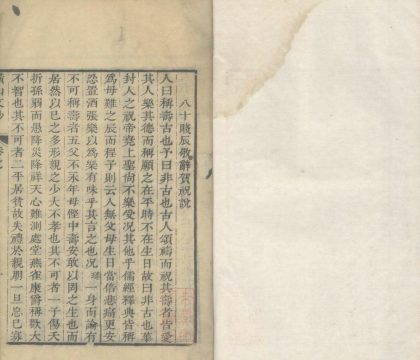 八十賤辰敬辭賀祝說
人曰稱壽古也予曰非古也古人頌禱而祝其壽者皆愛
其人樂其德而稱願之在平時不在生日故曰非古也華
封人之祝帝堯上聖尚不樂受況其他乎儒經釋典皆稱
為母難之辰而程子則云人無父母生日當倍悲痛更安
忍置酒張樂以為樂有味乎其言之也況 一身而論有
不可稱壽者五父不永年母罹中壽安敢以罔之生也而
居然以已之多形親之少大不孝也其不可者一子傷天
折孫弱而愚降災降祥天心難測處堂燕雀康爵稱歡大
不智也其不可者二平居貧故失禮於親朋一旦忽已